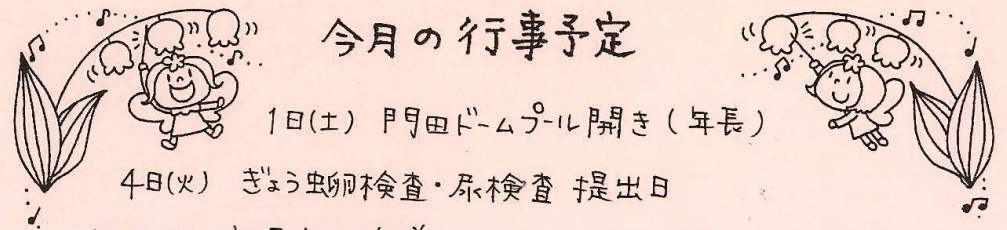 今月の行事予定
1日(土) 門田ドームプール開き(年長)
4日(火) ぎょう虫卵検査・尿検査 提出日